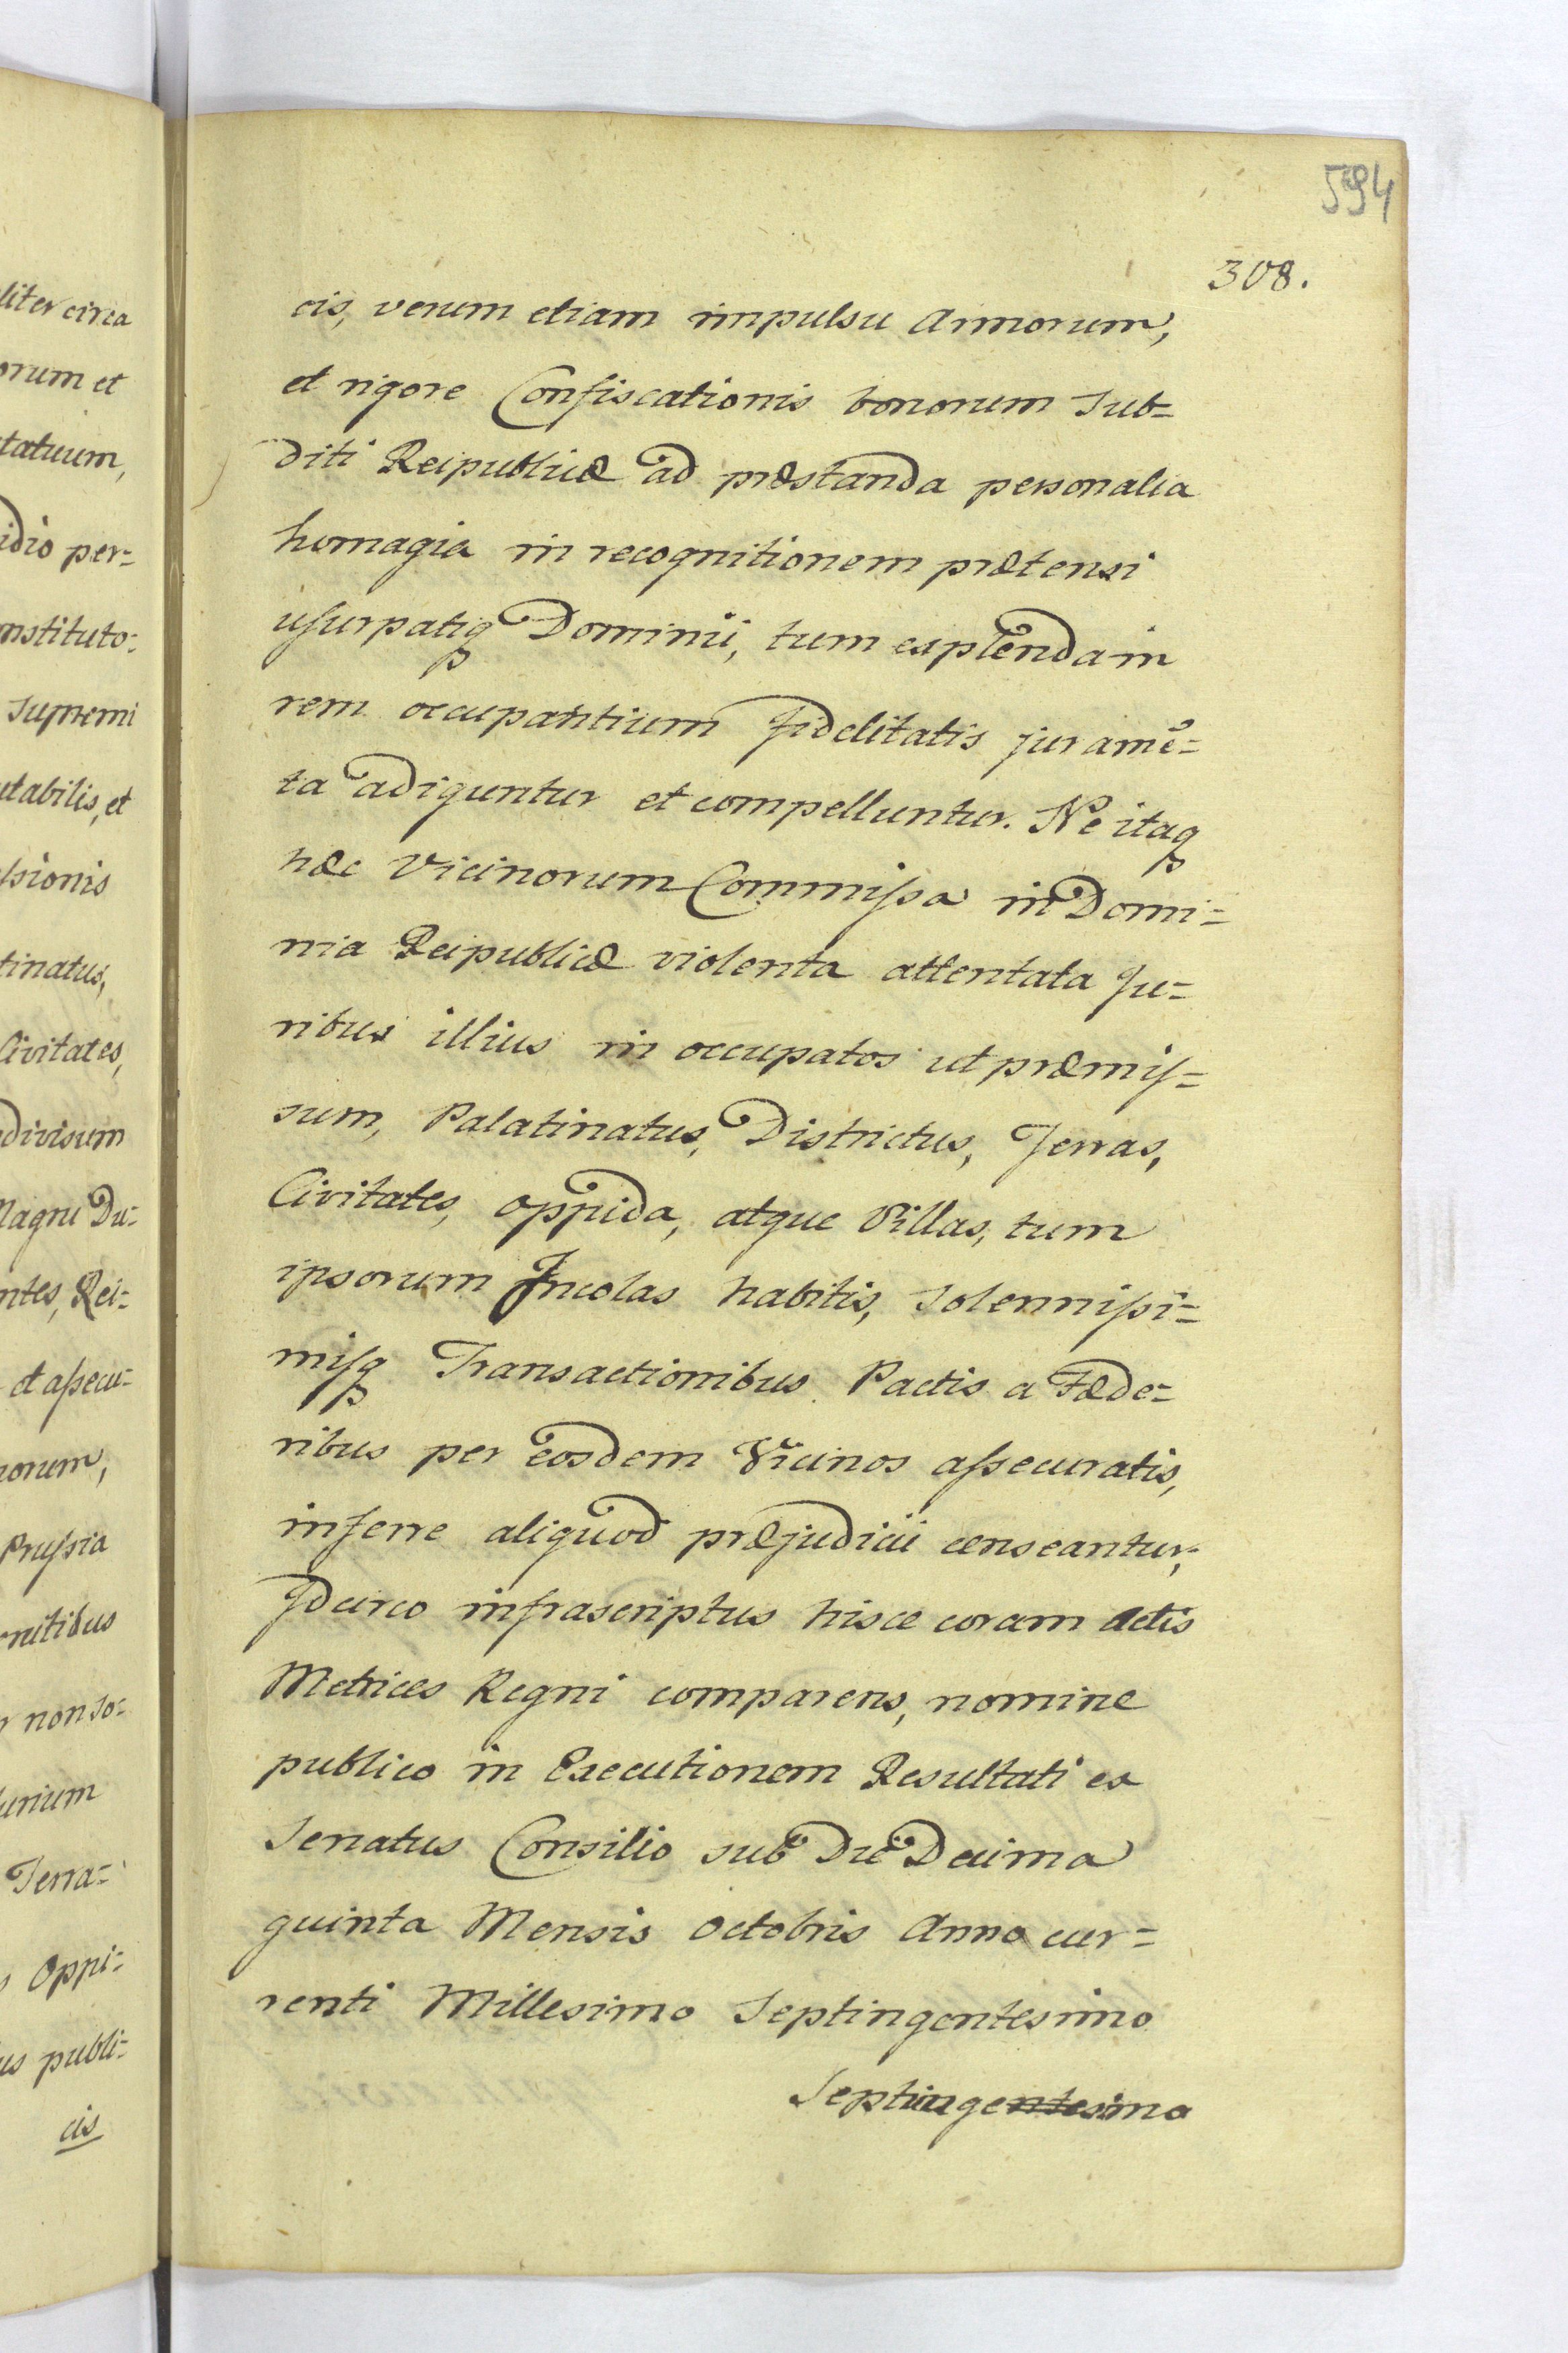 594
308.
cis, verum etiam impulsu Armorum,
et rigore Confiscationis bonorum Sub=
diti Reipublicæ ad præstanda personalia
homagia in recognitionem prætensi
usurpatiq Dominii, tum explenda in
rem occupantium Fidelitatis juramē=
ta adiguntur et compelluntur. Ne itaq
hæc Vicinorum Commissa in Domi=
nia Reipublicæ violenta attentata Ju=
ribus illius in occupatos ut præmis=
sum, Palatinatus, Districtus, Terras,
Civitates, Oppida, atque Villas, tum
ipsorum Incolas habitis, Solennissi=
misq Transactionibus Pactis a Fæde=
ribus per eosdem Vicinos assecuratis,
inferre aliquod præjudicii censeantur,
Idcirco infrascriptus hisce coram Actis
Metrices Regni comparens, nomine
publico in Executionem Resultati ex
Senatus Consilio sub Die Decima
quinta Mensis Octobris Anno cur=
renti Millesimo Septingentesimo
Septingentesimo
liter circa
orum et
tatuum,
idio per=
onstituto=
Supremi
utabilis, et
ssionis
tinatus,
Civitates,
divisum
Magni Du=
ntes, Rei=
et assecu=
norum,
Prussia
nitibus
non so=
urium
Terra=
Oppi=
us publi=
cis